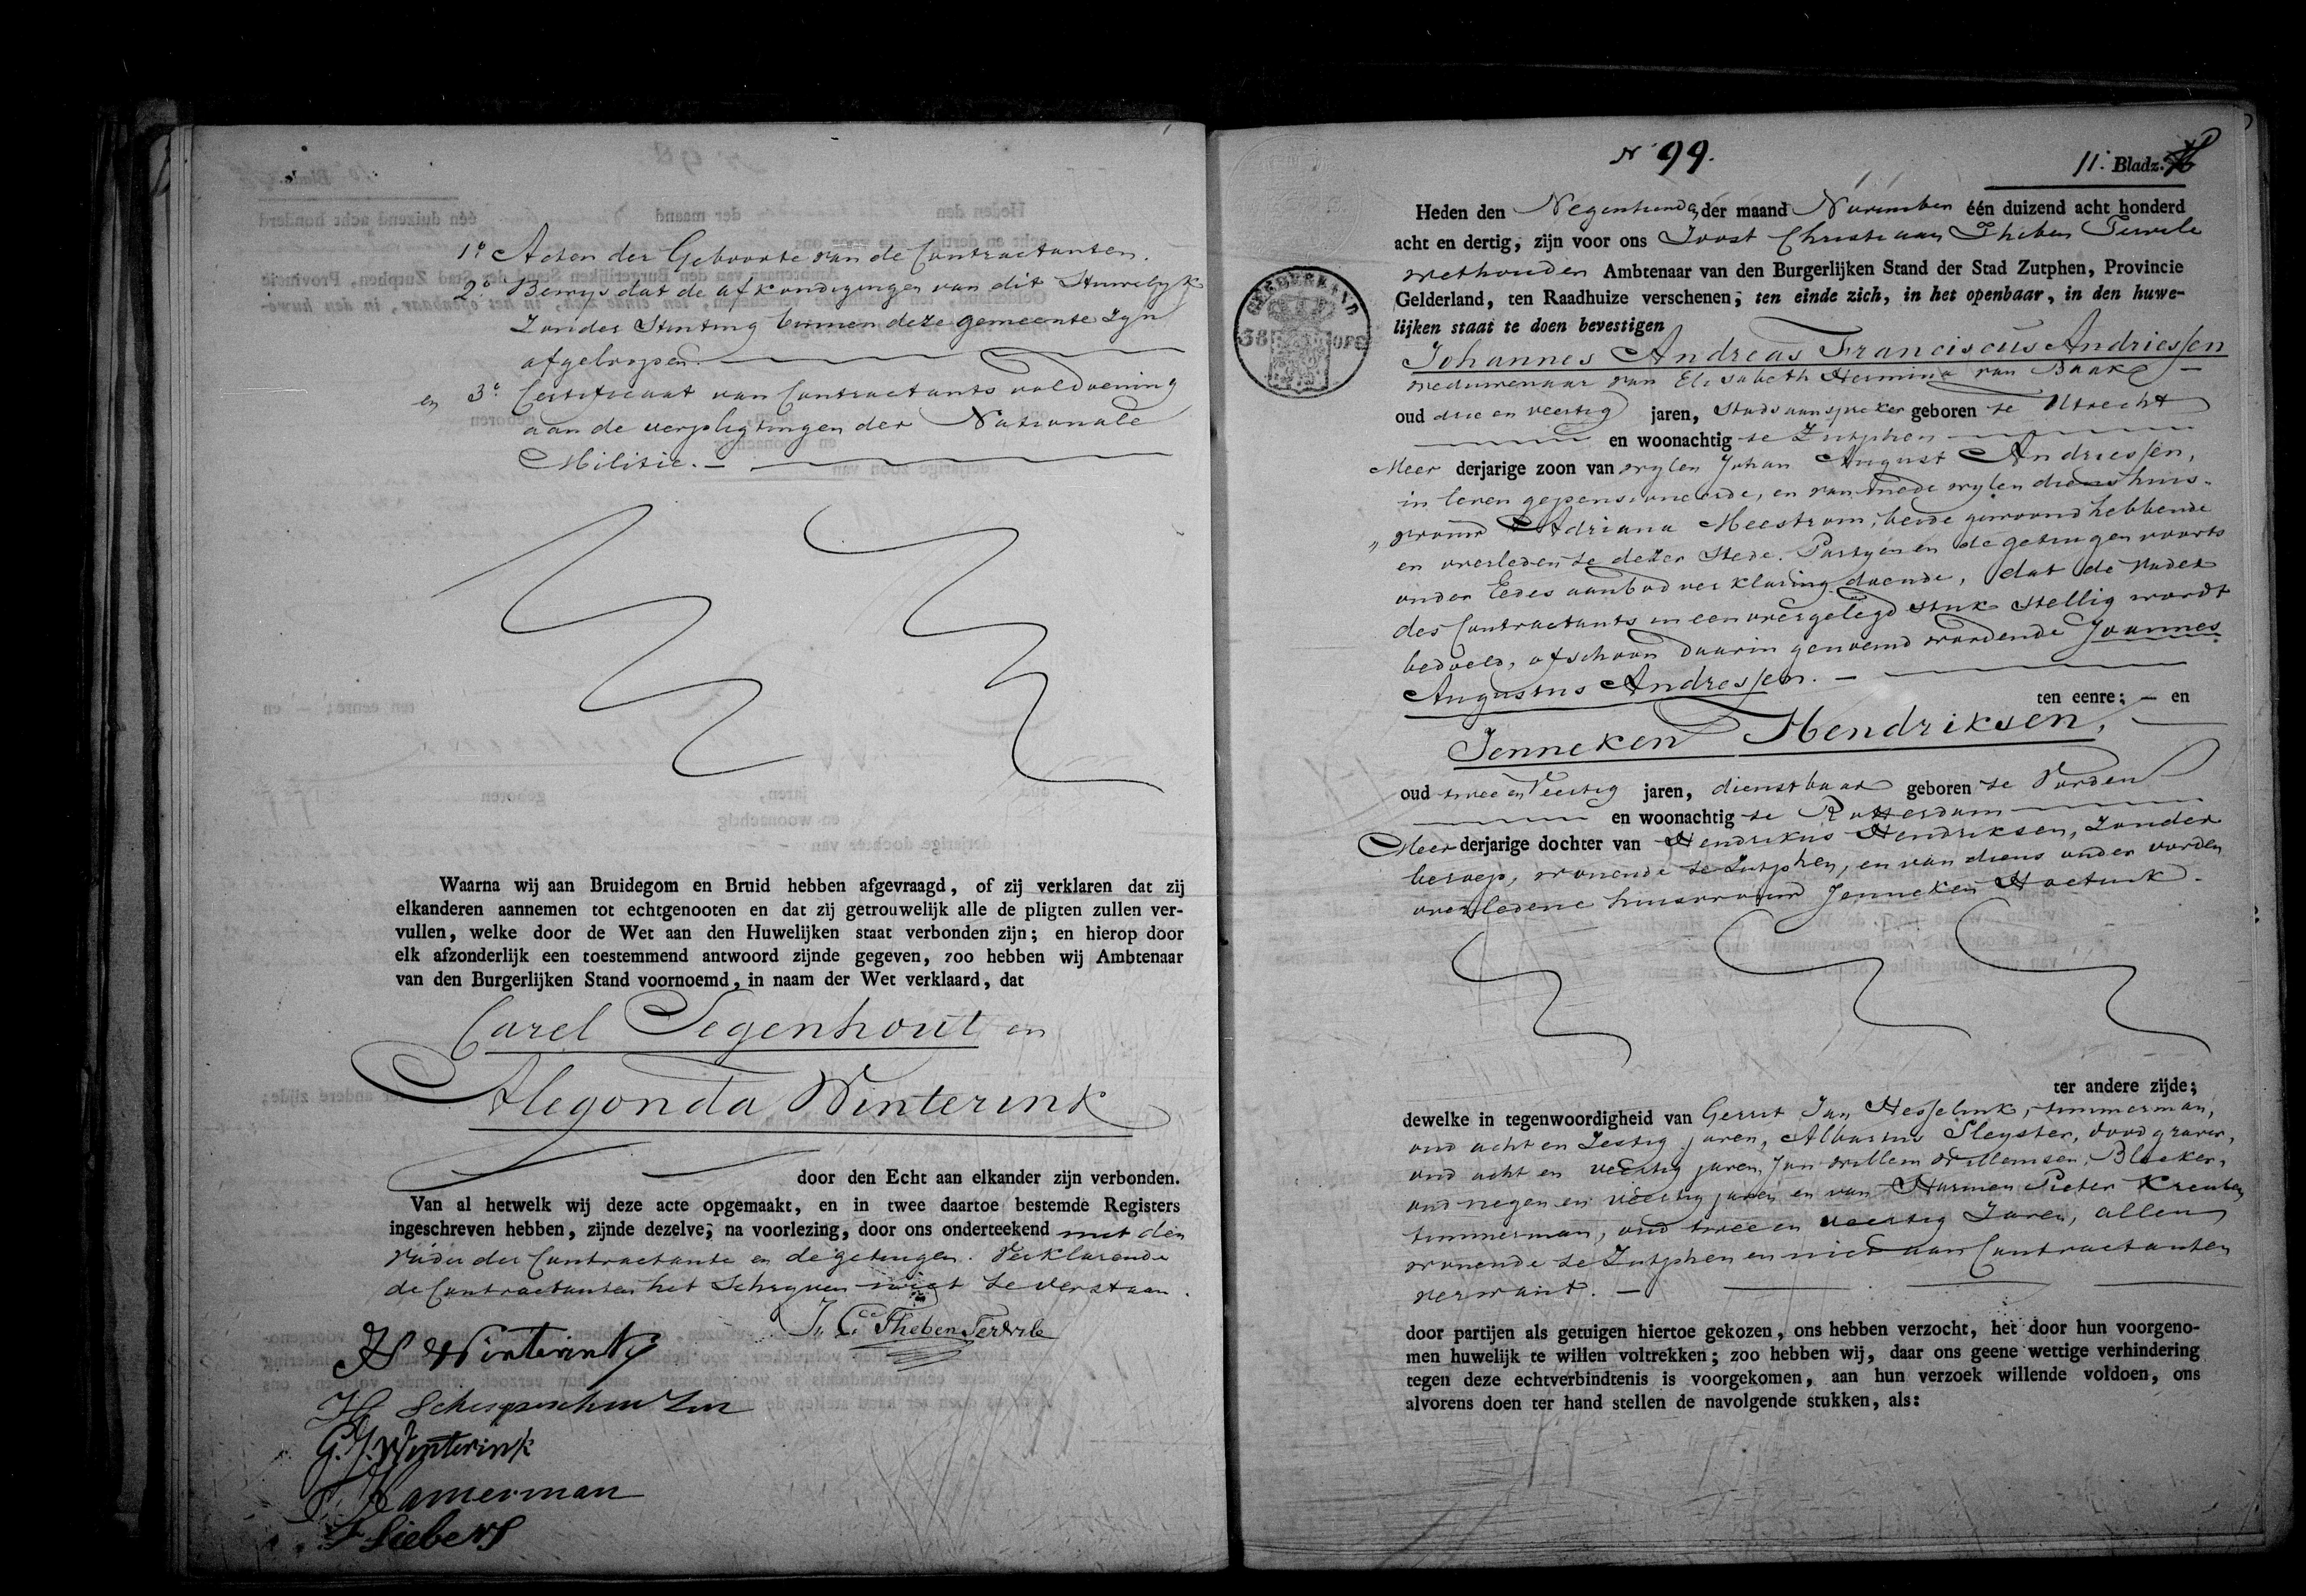 1° Acten der Geboorte van de Contractanten.
2° Bewys dat de afkondigingen van dit Huwelyk
Zonder Stuiting binnen deze gemeente zyn
afgeloopen.
en 3° Certificaat van Contractants voldoening
aan de verpligtingen der Nationale
Militie. —
Waarna wij aan Bruidegom en Bruid hebben afgevraagd, of zij verklaren dat zij
elkanderen aannemen tot echtgenooten en dat zij getrouwelijk alle de pligten zullen ver-
vullen, welke door de Wet aan den Huwelijken staat verbonden zijn; en hierop door
elk afzonderlijk een toestemmend antwoord zijnde gegeven, zoo hebben wij Ambtenaar
van den Burgerlijken Stand voornoemd, in naam der Wet verklaard, dat
Carel Segenhout en
Alegonda Winterink
door den Echt aan elkander zijn verbonden.
Van al hetwelk wij deze acte opgemaakt, en in twee daartoe bestemde Registers
ingeschreven hebben, zijnde dezelve, na voorlezing, door ons onderteekend met den
Vader der Contractante en de getuigen. Verklarende
de Contractanten het Schryven niet te verstaan.
J. C. Theben Terwile
Winterink
H
G.J. Winterink
Hamerman
Siebers
N° 99.
11. Bladz.
Heden den Negentiende der maand November één duizend acht honderd
acht en dertig, zijn voor ons Joost Christiaan Theben Terwile
wethouder Ambtenaar van den Burgerlijken Stand der Stad Zutphen, Provincie
Gelderland, ten Raadhuize verschenen, ten einde zich, in het openbaar, in den huwe-
lijken staat te doen bevestigen
GELDERLAND
38
Johannes Andreas Franciscus Andriessen
weduwenaar van Elisabeth Hermina van Baak —
oud drie en veertig jaren, Stads aanspreker geboren te Utrecht
en woonachtig te Zutphen
Meer derjarige zoon van wylen Johan August Andriessen,
in leven gepensioneerde, en van mede wylen diens huis-
„ vrouw Adriana Meestrom, beide gewoond hebbende
en overleden te dezer Stede. Partyen en de getuigen voorts
onder Eedes aanbod verklaring doende, dat de vader
des Contractants in een overgelegd stuk stellig wordt
bedoeld, ofschoon daarin genoemd wordende Joannes
Augustus Andressen. —
ten eenre; — en
Jenneken Hendriksen,
oud twee en Veertig jaren, dienstbaar geboren te Vorden
en woonachtig te Rotterdam
Meer derjarige dochter van Hendrikus Hendriksen, Zonder
beroep, wonende te Zutphen, en van diens onder Vorden
overledene huisvrouw Jenneken Hoetink.
ter andere zijde;
dewelke in tegenwoordigheid van Gerrit Jan Hesselink, timmerman,
oud acht en Zestig jaren, Albartus Sleyster, doodgraver,
oud acht en veertig jaren, Jan Willem Willemsen, Bleeker,
oud negen en veertig jaren en van Harmen Pieter
timmerman, oud twee en veertig Jaren, allen
wonende te Zutphen en niet aan Contractanten
verwant. —
door partijen als getuigen hiertoe gekozen, ons hebben verzocht, het door hun voorgeno-
men huwelijk te willen voltrekken; zoo hebben wij, daar ons geene wettige verhindering
tegen deze echtverbindtenis is voorgekomen, aan hun verzoek willende voldoen, ons
alvorens doen ter hand stellen de navolgende stukken, als: